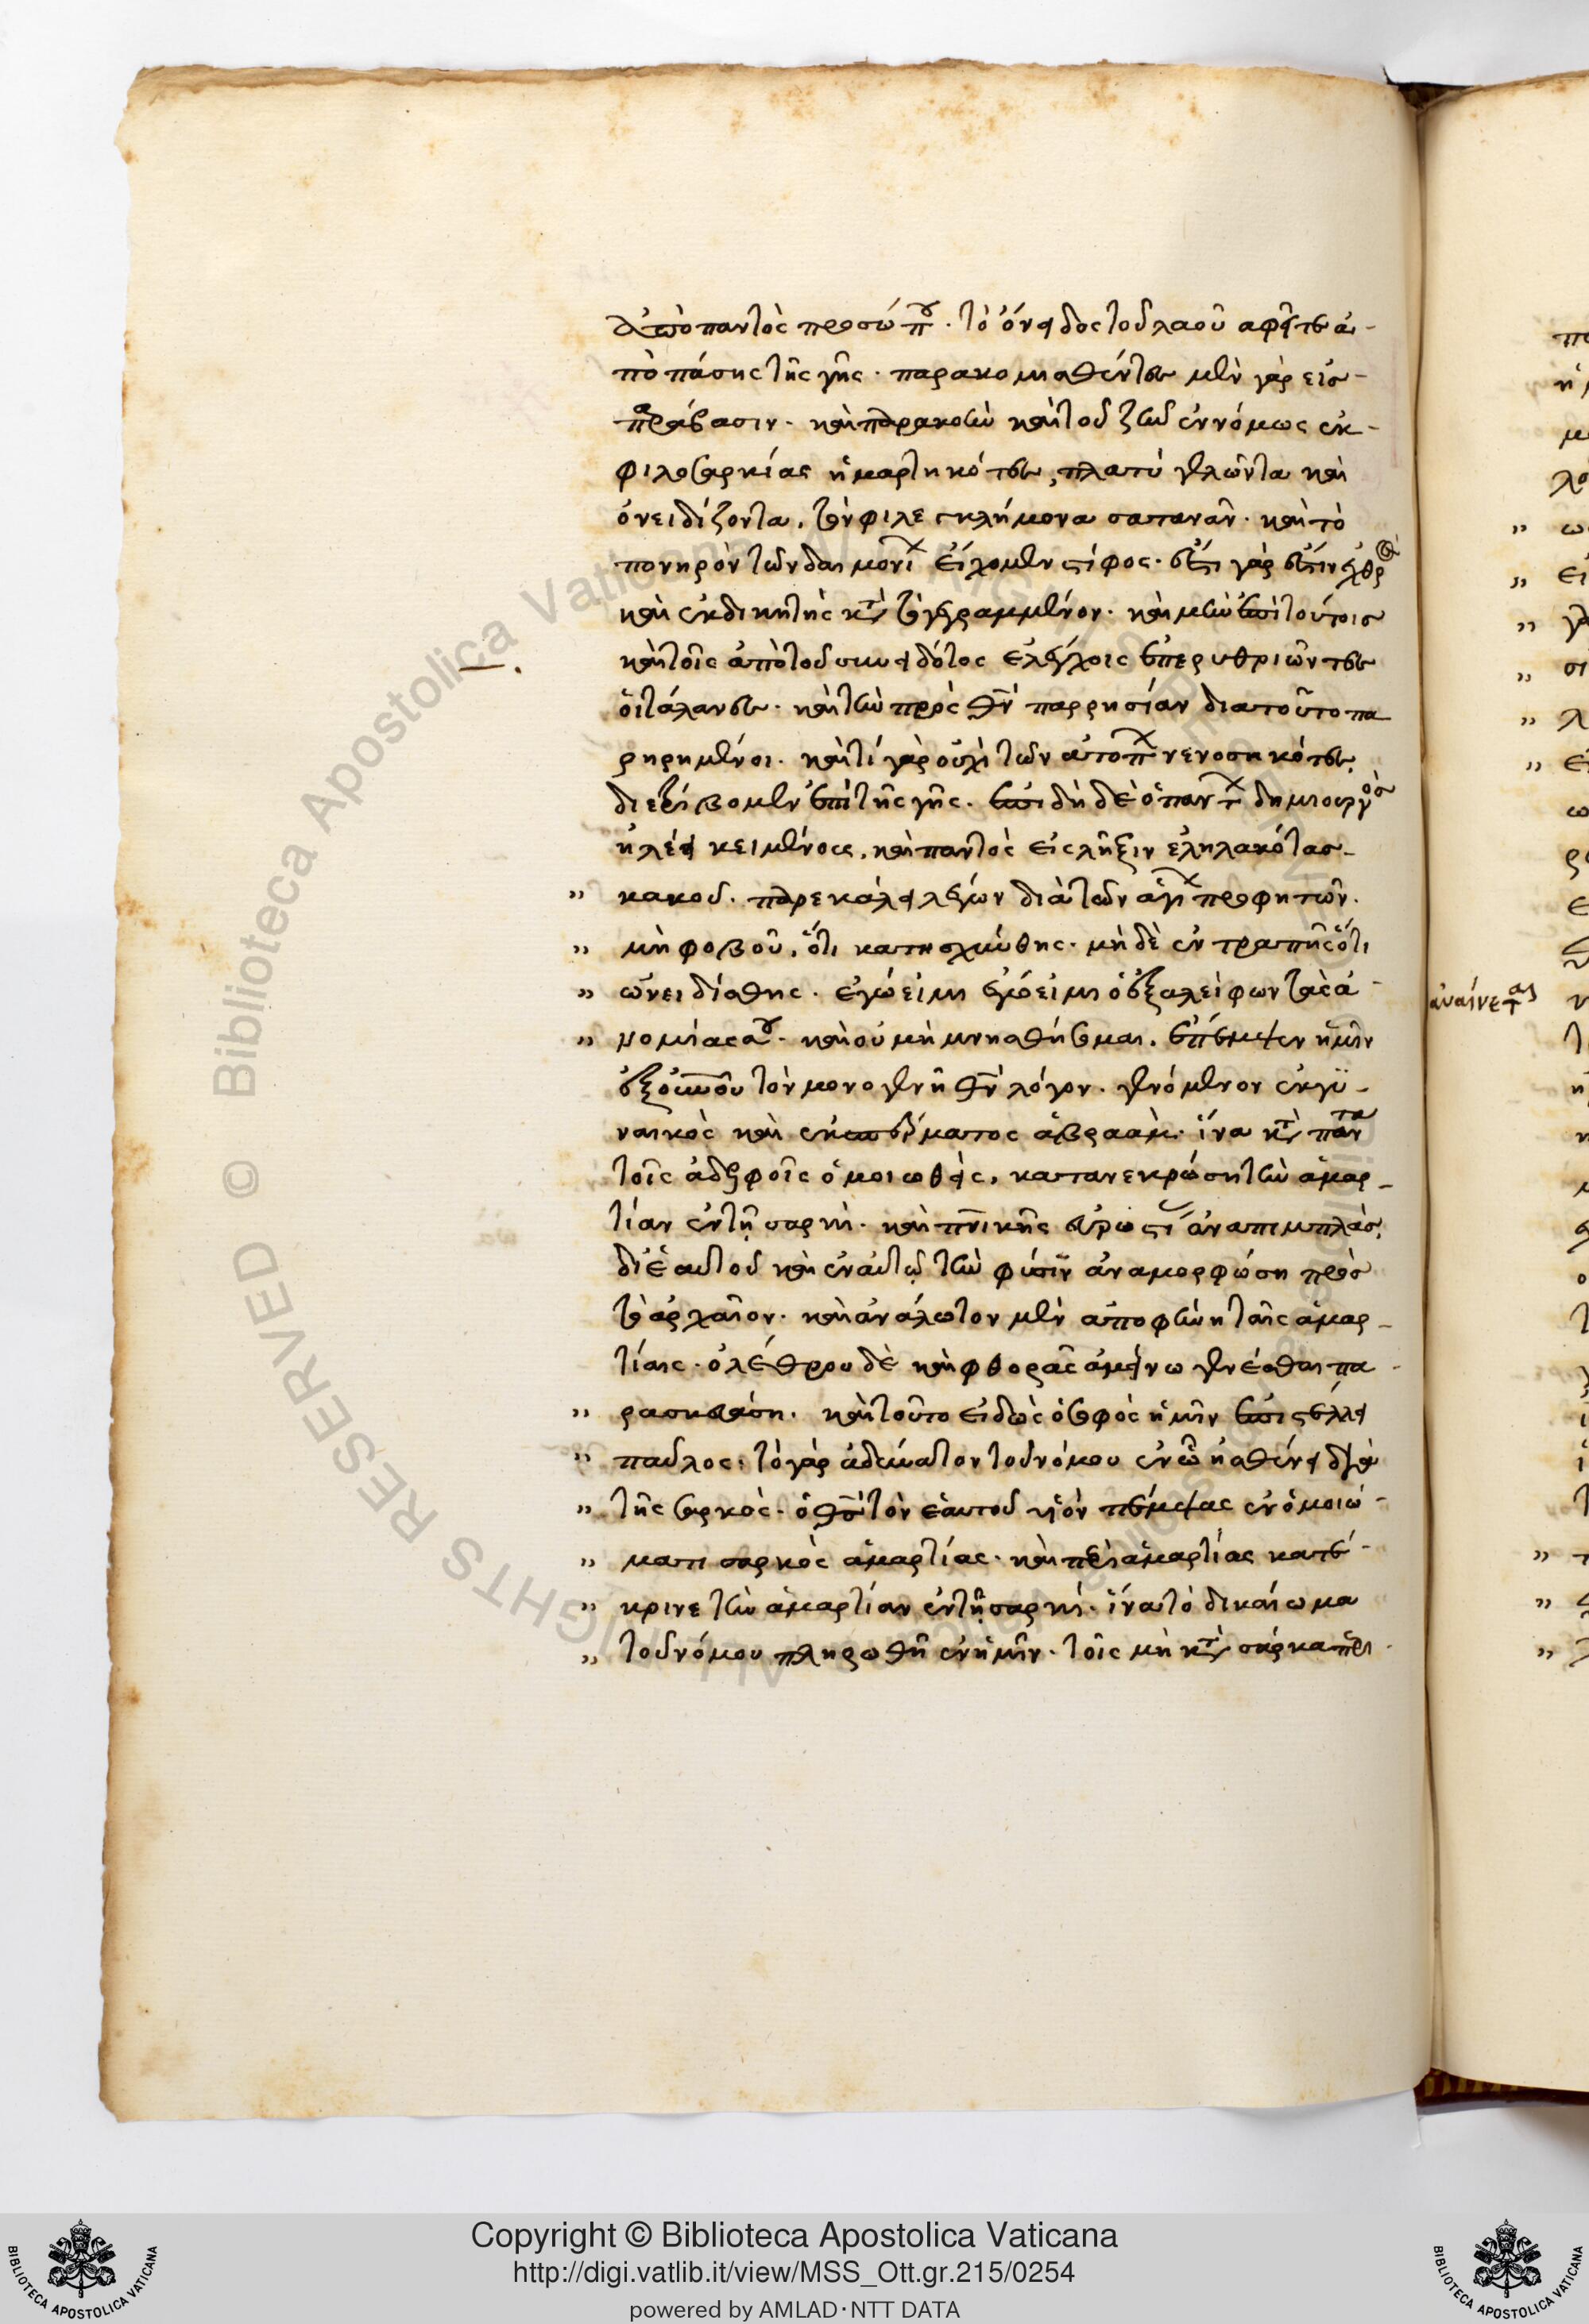 ἀπὸ παντὸς προσώπου. τὸ ὄνειδος τοῦ λαοῦ ἀφεῖλεν ἀ-
πὸ πάσης τῆς γῆς. παρακομισθέντες μὲν γὰρ εἰς
παράβασιν. καὶ παρακοὴν καὶ τοῦ ζῆν ἐννόμως ἐκ
φιλοσαρκίας ἡμαρτηκότες, πλατὺ γελῶντα καὶ
ὀνειδίζοντα, τὸν φιλεγκλήμονα σατανᾶν. καὶ τὸ
πονηρὸν τῶν δαιμονίων εἴχομεν στίφος. ἔστι γὰρ ἔστιν ἐχθρὸς
καὶ ἐκδικητὴς κατὰ τὸ γεγραμμένον. καὶ μὴν ἐπὶ τούτοις
καὶ τοῖς ἀπὸ τοῦ συνειδότος ἐλέγχοις ὑπερυθριῶντες
οἱ τάλανες. καὶ τὴν πρὸς θν παρρησίαν διατοῦτο πα
ρηρημένοι. καὶ τί γὰρ οὐχὶ τῶν ἀτόπων νενοσηκότες,
διετρίβομεν ἐπὶ τῆς γῆς. ἐπειδὴ δὲ ὁ πάντων δημιουργὸς
ἠλέει κειμένους, καὶ παντὸς εἰς λῆξιν ἐληλακότας
κακοῦ. παρεκάλει λέγων διὰ τῶν ἁγίων προφητῶν.
μὴ φοβοῦ, ὅτι κατῃσχύνθης. μὴ δὲ ἐντραπῇς ὅτι
ὠνειδίσθης. ἐγώ εἰμι ἐγώ εἰμι ὁ ἐξαλείφων τὰς ἀ
νομίας σου. καὶ οὐ μὴ μνησθήσομαι. ἔπεμψεν ἡμῖν
ἐξ οὐνου τὸν μονογενῆ θν λόγον. γενόμενον ἐκ γυ-
ναικὸς καὶ ἐκ σπέρματος ἀβραάμ. ἵνα κατὰ πάντα
τοῖς ἀδελφοῖς ὁμοιωθεὶς, κατανεκρώσῃ τὴν ἁμαρ-
τίαν ἐν τῇ σαρκί. καὶ πνικῆς εὐρωστίας ἀναπιμπλὰς,
δι ἑαυτοῦ καὶ ἐν αὐτῷ τὴν φύσιν ἀναμορφώσῃ πρὸς
τὸ ἀρχαῖον. καὶ ἀνάλωτον μὲν ἀποφήνῃ ταῖς ἁμαρ-
τίαις. ὀλέθρου δὲ καὶ φθορᾶς ἀμείνω γενέσθαι πα
ρασκευάσῃ. καὶ τοῦτο εἰδὼς ὁ σοφὸς ἡμῖν ἐπιστέλλει
παῦλος. τὸ γὰρ ἀδύνατον τοῦ νόμου ἐν ᾧ ἠσθένει διὰ
τῆς σαρκὸς. ὁ θς τὸν ἑαυτοῦ υἱὸν πέμψας ἐν ὁμοιώ-
ματι σαρκὸς ἁμαρτίας. καὶ περὶ ἁμαρτίας κατέ-
κρινε τὴν ἁμαρτίαν ἐν τῇ σαρκί. ἵνα τὸ δικαίωμα
τοῦ νόμου πληρωθῇ ἐν ἡμῖν. τοῖς μὴ κατὰ σάρκα περι
ἀναίνεται
© Biblioteca Apostolica Vaticana
ALL RIGHTS RESERVED
Copyright © Biblioteca Apostolica Vaticana
http://digi.vatlib.it/view/MSS_Ott.gr.215/0254
powered by AMLAD·NTT DATA
BIBLIOTECA APOSTOLICA VATICANA
BIBLIOTECA APOSTOLICA VATICANA